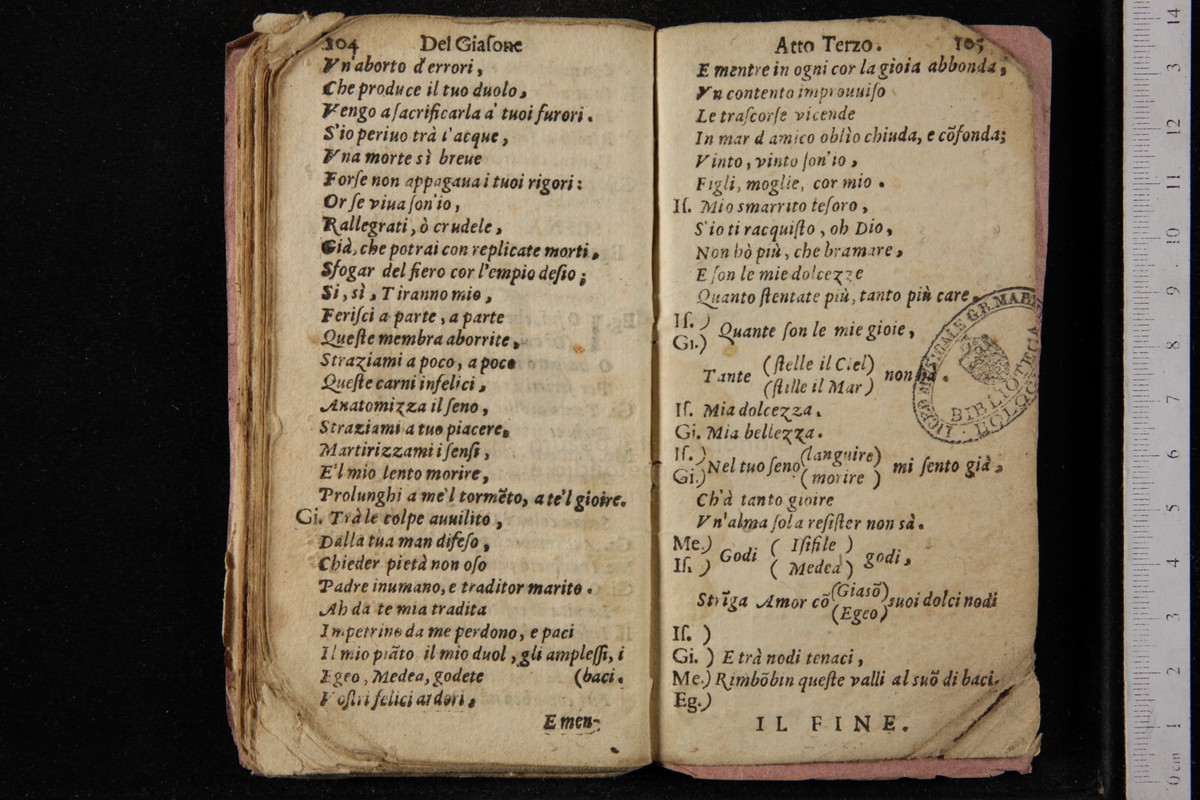 104 Del Giaſone
Vn'aborto d'errori,
Che produce il tuo duolo,
Vengo a ſacrificarla a' tuoi furori.
S'io periuo trà l'acque,
Vna morte sì breue
Forſe non appagaua i tuoi rigori:
Or ſe viua ſon'io,
Rallegrati, ò crudele,
Già, che potrai con replicate morti,
Sfogar del fiero cor l'empio deſio;
Si, sì, Tiranno mio,
Feriſci a parte, a parte
Queſte membra aborrite,
Straziami a poco, a poco
Queſte carni infelici,
Anatomizza il ſeno,
Straziami a tuo piacere,
Martirizzami i ſenſi,
E'l mio lento morire,
Prolunghi a me'l tormẽto, a te'l gioire.
Gi. Trà le colpe auuilito,
Dalla tua man difeſo,
Chieder pietà non oſo
Padre inumano, e traditor marito.
Ah da te mia tradita
Impetrino da me perdono, e paci
Il mio piãto il mio duol, gli ampleſſi, i
Egeo, Medea, godete (baci.
Voſtri felici ardori,
E men-
Atto Terzo. 105
E mentre in ogni cor la gioia abbonda,
Vn contento improuuiſo
Le traſcorſe vicende
In mar d'amico oblìo chiuda, e cõfonda;
Vinto, vinto ſon'io,
Figli, moglie, cor mio.
Iſ. Mio smarrito teſoro,
S'io ti racquiſto, oh Dio,
Non hò più, che bramare,
E ſon le mie dolcezze
Quanto ſtentate più, tanto più care.
Iſ. )
Gi.) Quante ſon le mie gioie,
Tante (ſtelle il Ciel) non hà.
(ſtille il Mar)
Iſ. Mia dolcezza.
Gi. Mia bellezza.
Iſ. ) Nel tuo ſeno (languire) mi ſento già,
Gi.) (morire )
Ch'à tanto gioire
Vn'alma ſola reſiſter non sà.
Me.) Godi ( Iſifile ) godi,
Iſ. ) ( Medea )
Strĩga Amor cõ (Giasõ) suoi dolci nodi
(Egeo)
Iſ. )
Gi. ) E trà nodi tenaci,
Me.) Rimbõbin queſte valli al suõ di baci.
Eg.)
IL FINE.
BIBLIOTECA